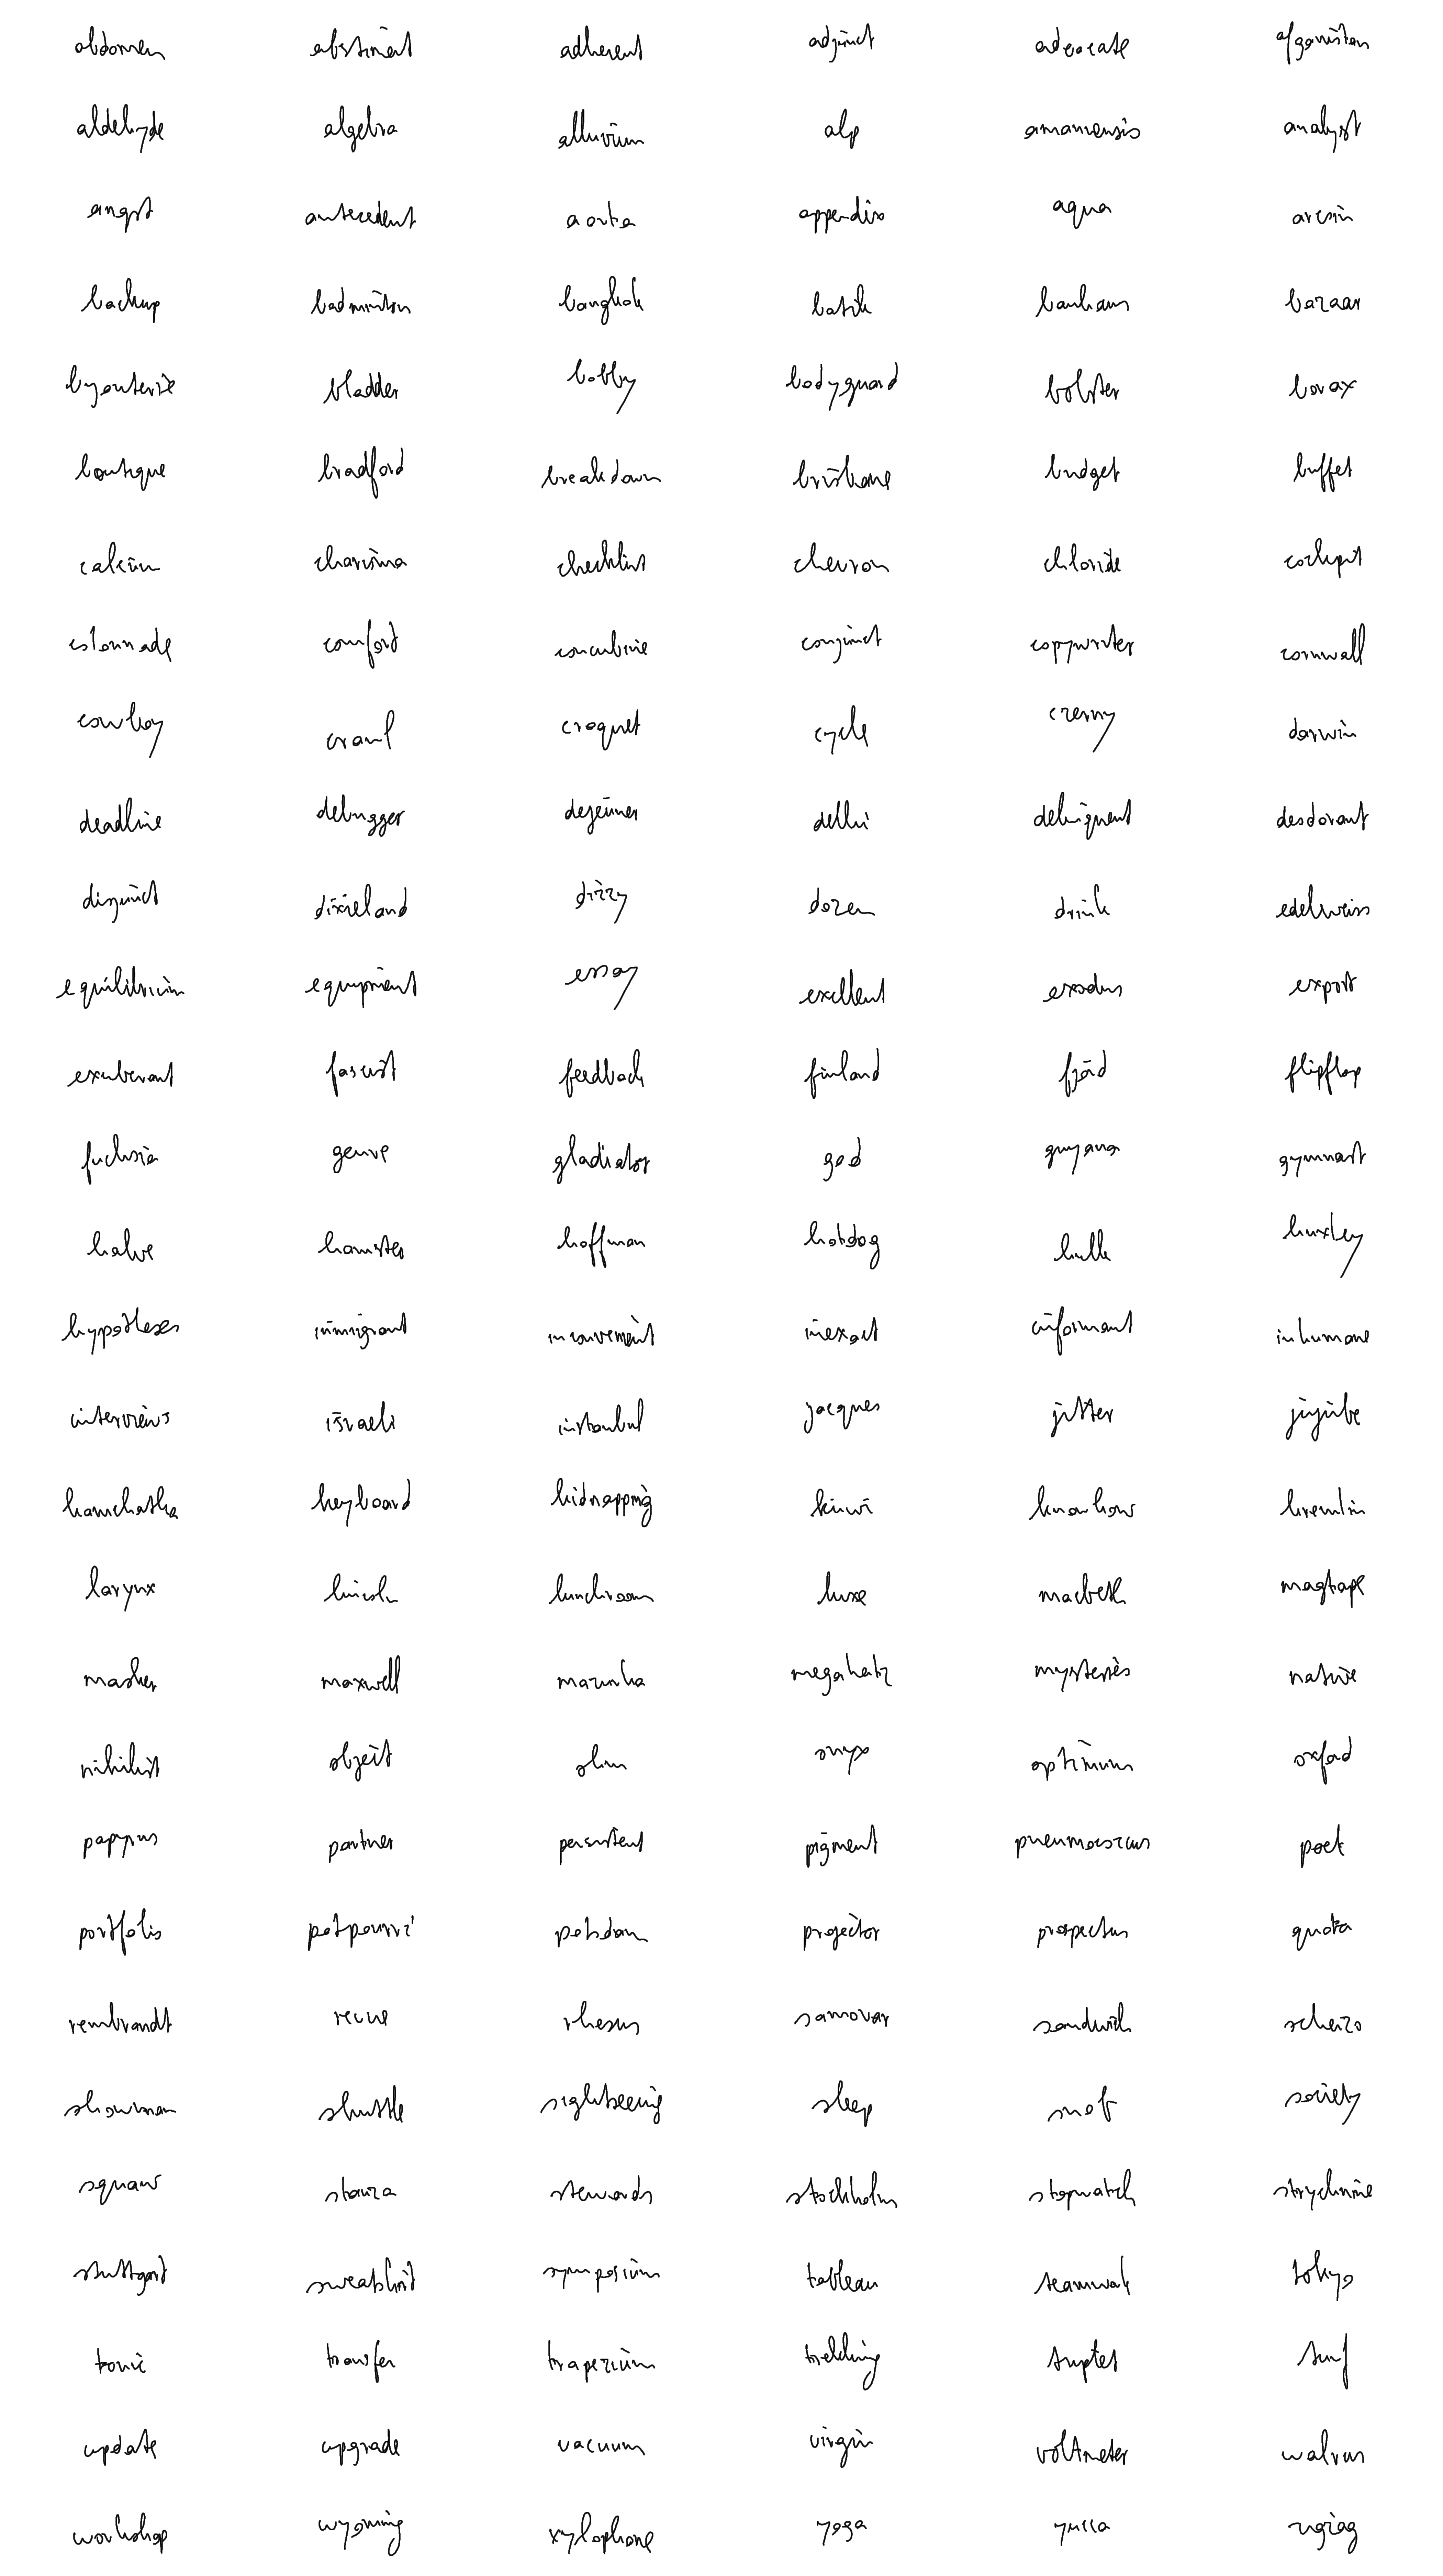 abdomen abstinent adherent adjunct advocate afganistan
aldehyde algebra alluvium alp amanuensis analyst
angst antecedent aorta appendix aqua arcsin
backup badminton bangkok batik bauhaus bazaar
byouterie bladder bobby bodyguard bolster borax
boutique bradford breakdown brisbane budget buffet
calcium charisma checklist chevron chloride cockpit
colonnade comfort concubine conjunct copywriter cornwall
cowboy crawl croquet cycle czerny darwin
deadline debugger dejeuner delhi delinquent desdorant
disjunct dixieland dizzy dozen drink edelweiss
equilibrium equipment essay excellent exodus export
exuberant fascist feedback finland fjord flipflop
fuchsia genre gladiator god guyana gymnast
halve hamster hoffman hotdog hulk huxley
hypotheses immigrant inconvenient inexact informant inhumane
interviews israeli istanbul jacques jitter jujube
kamchatka keyboard kidnapping kiwi knowhow kremlin
larynx lincoln lunchroom luxe macbeth magtape
masker maxwell mazurka megahertz mysteries native
nihilist object ohm onyx optimum oxford
papyrus partner persistent pigment pneumococcus poet
portfolio potpourri potsdam projector prospectus quota
rembrandt revue rhesus samovar sandwich scherzo
showman shuttle sightseeing sleep snob society
squaw stanza stewards stockholm stopwatch strychnine
stuttgart sweatshirt symposium tableau teamwork tokyo
tonic transfer trapezium trekking triptet turf
update upgrade vacuum virgin voltmeter walrus
workshop wyoming xylophone yoga yucca zigzag